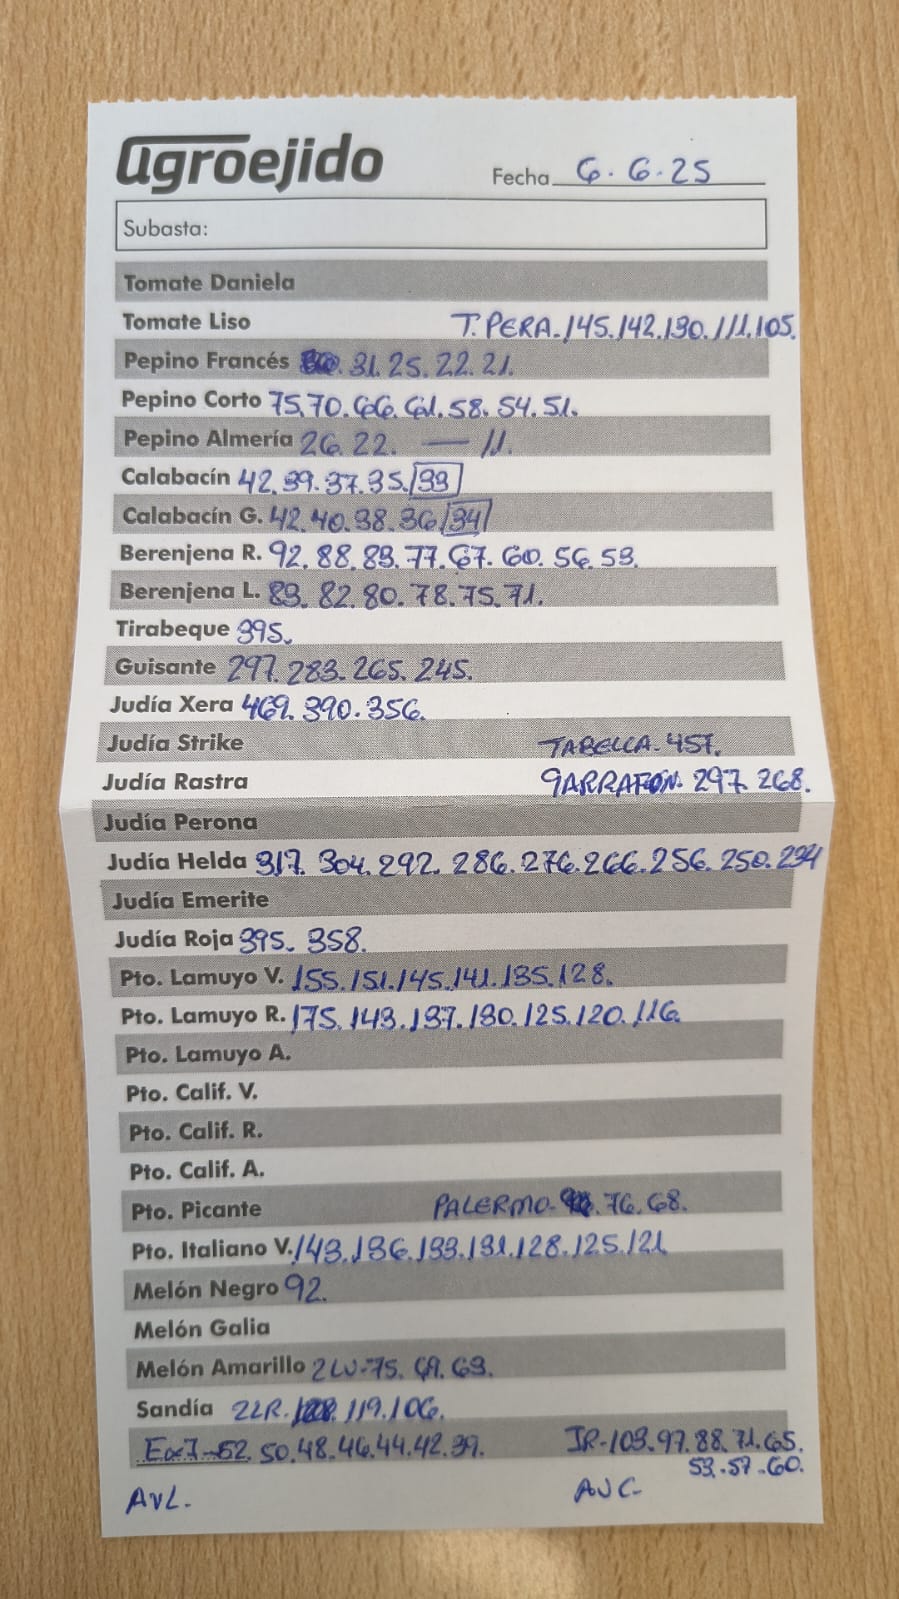 agroejido
Fecha 6.6.25
Subasta:
Tomate Daniela
Tomate Liso T. PERA-145.142.130.111.105.
Pepino Francés 31.25.22.21.
Pepino Corto 75.70.66.61.58.54.51.
Pepino Almería 26.22. — 11.
Calabacín 42.39.37.35./33
Calabacín G. 42.40.38.36/34
Berenjena R. 92.88.83.77.67.60.56.53.
Berenjena L. 83.82.80.78.75.71.
Tirabeque 395.
Guisante 297.283.265.245.
Judía Xera 469.390.356.
Judía Strike TABELLA-457.
Judía Rastra GARRAFON. 297.268.
Judía Perona
Judía Helda 317.304.292.286.276.266.256.250.234
Judía Emerite
Judía Roja 395.358.
Pto. Lamuyo V. 155.151.145.141.135.128.
Pto. Lamuyo R. 175.143.137.130.125.120.116.
Pto. Lamuyo A.
Pto. Calif. V.
Pto. Calif. R.
Pto. Calif. A.
Pto. Picante PALERMO- 76.68.
Pto. Italiano V. 143.136.133.131.128.125.121
Melón Negro 92.
Melón Galia
Melón Amarillo 75. 69.63.
Sandía 119.106.
52.50.48.46.44.42.39. 103.97.88.71.65.
53.-57-60.
AVL. AVC-